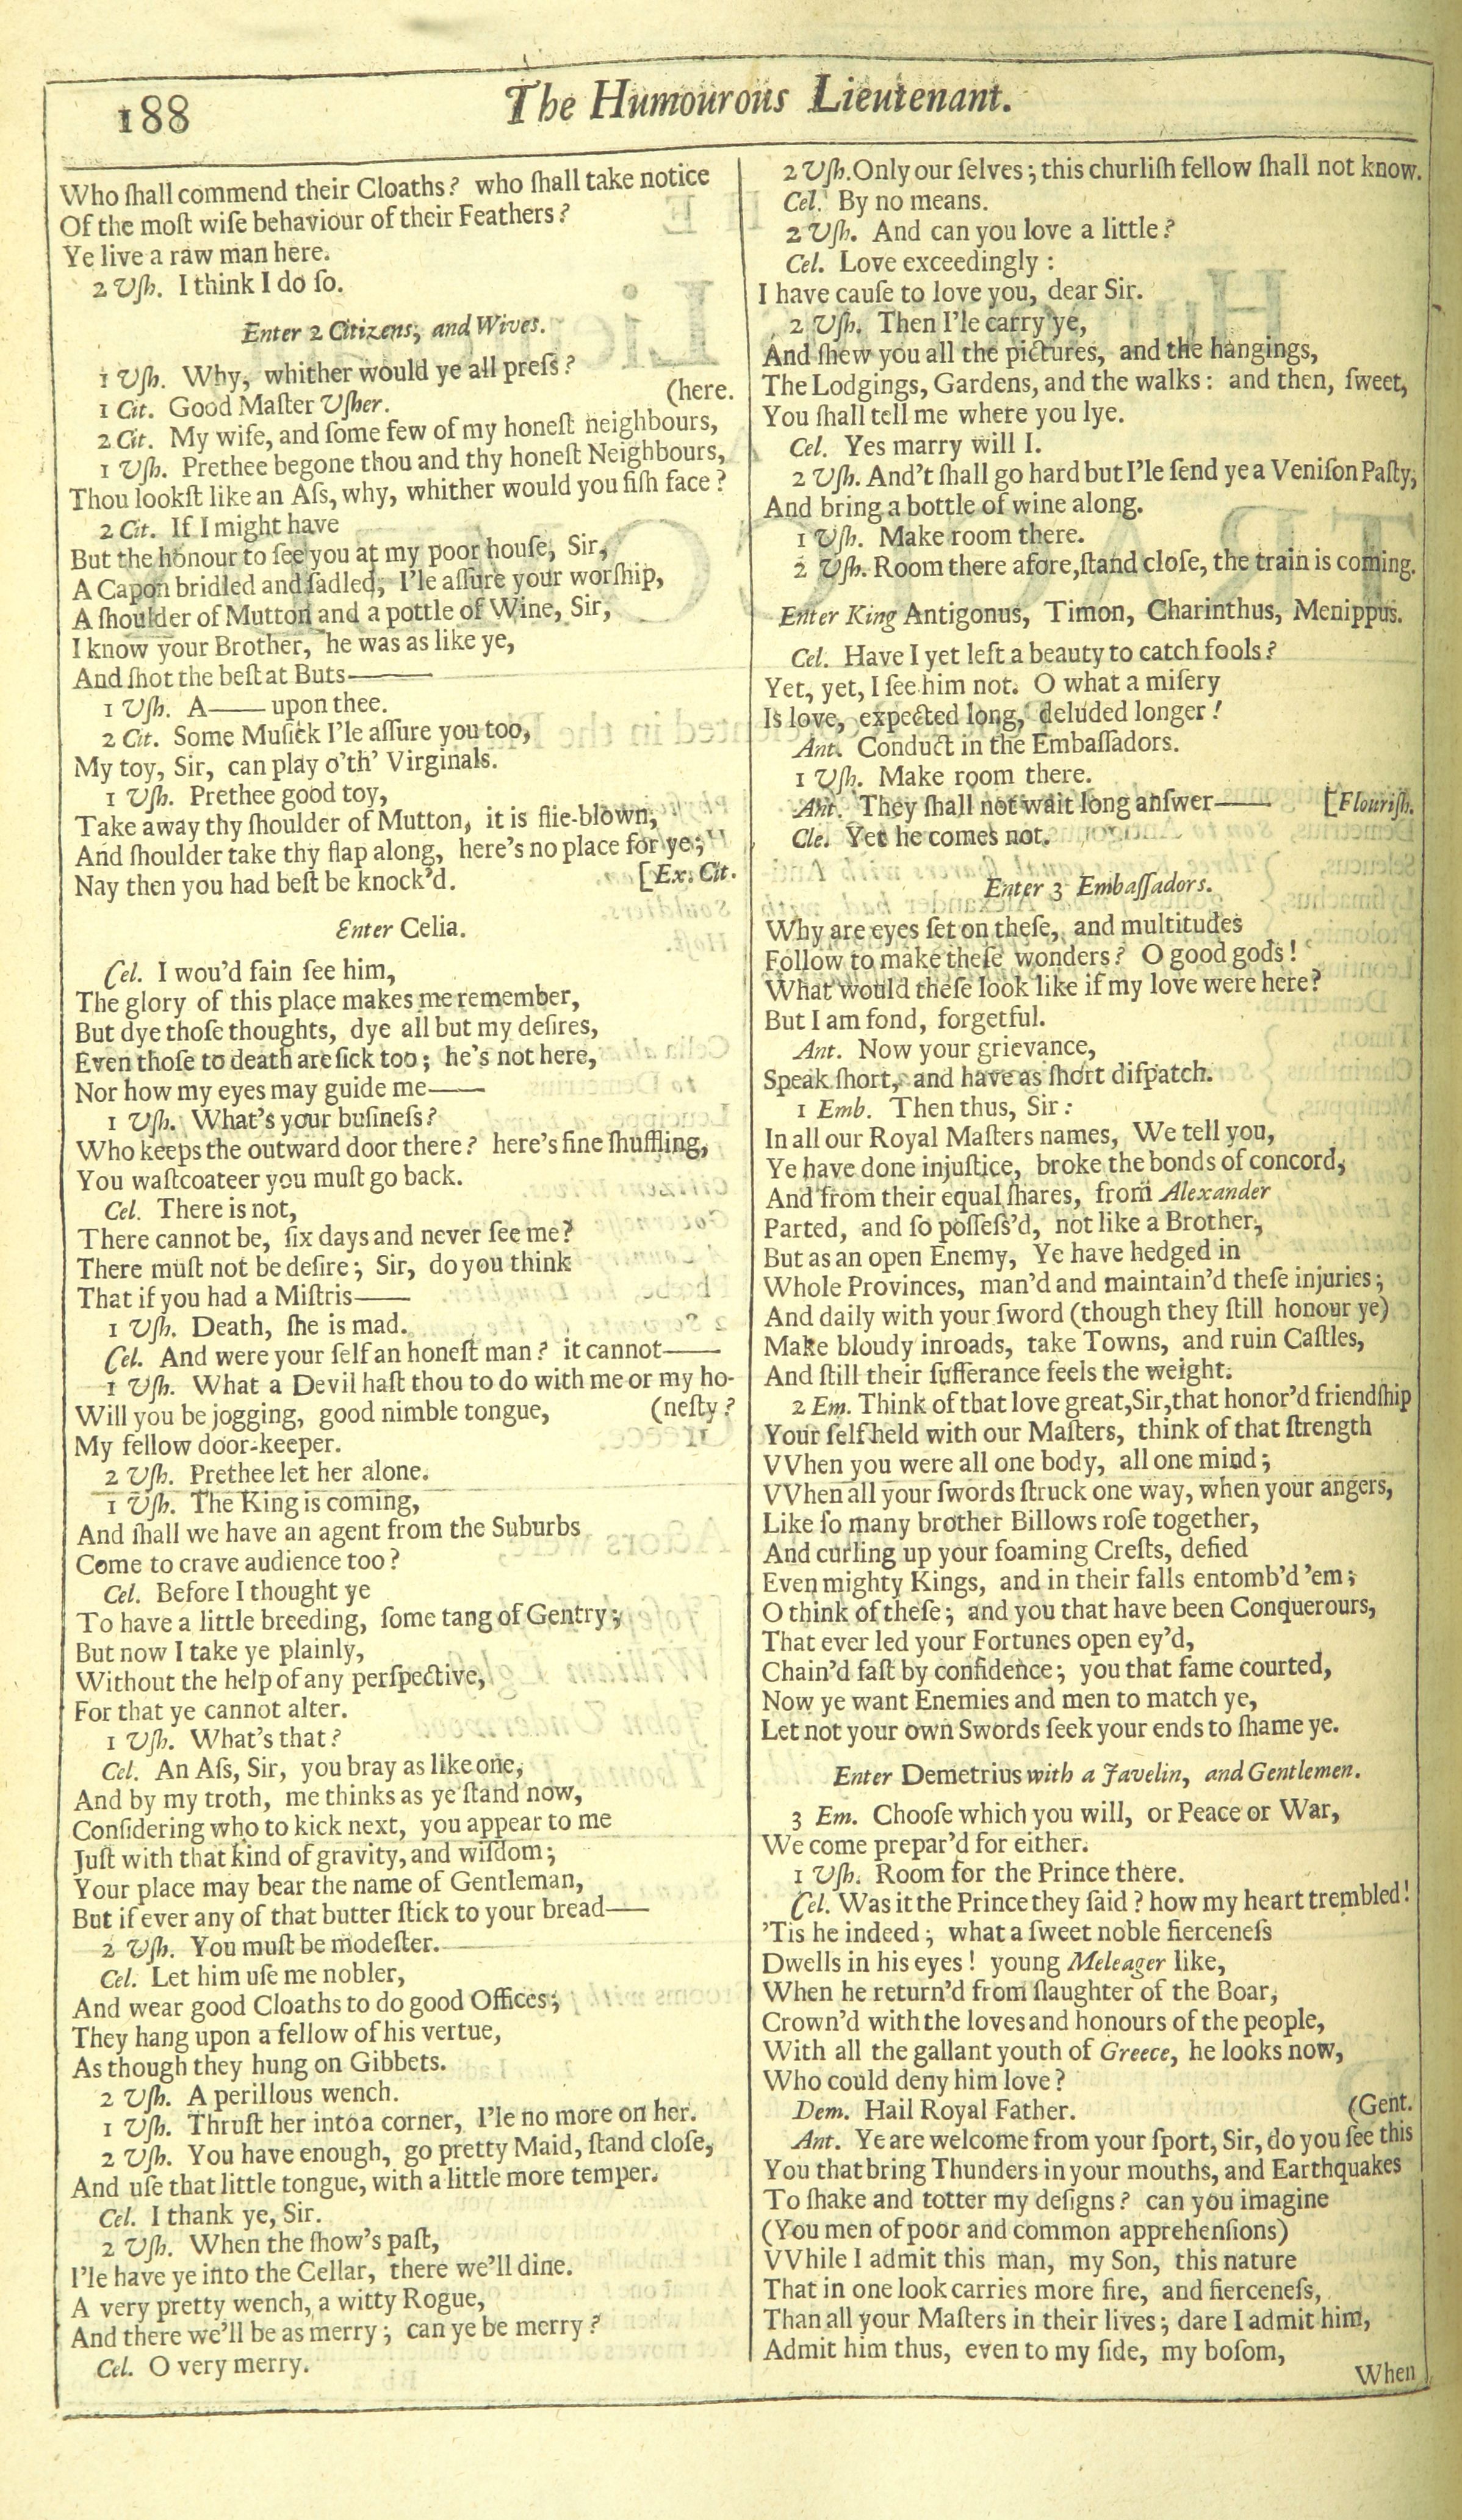 188
The Humourous Lieutenant.
Who ſhall commend their Cloaths? who ſhall take notice
Of the moſt wiſe behaviour of their Feathers?
Ye live a raw man here.
2 Uſh. I think I do ſo.
Enter 2 Citizens, and Wives.
1 Uſh. Why, whither would ye all preſs?
1 Cit. Good Maſter Uſher.
(here.
2 Cit. My wife, and ſome few of my honeſt neighbours,
1 Uſh. Prethee begone thou and thy honeſt Neighbours,
Thou lookſt like an Aſs, why, whither would you fiſh face?
2 Cit. If I might have
But the honour to ſee you at my poor houſe, Sir,
A Capon bridled and ſadled, I'le aſſure your worſhip,
A ſhoulder of Mutton and a pottle of Wine, Sir,
I know your Brother, he was as like ye,
And ſhot the beſt at Buts——
1 Uſh. A—— upon thee.
2 Cit. Some Muſick I'le aſſure you too,
My toy, Sir, can play o'th' Virginals.
1 Uſh. Prethee good toy,
Take away thy ſhoulder of Mutton, it is flie-blown,
And ſhoulder take thy flap along, here's no place for ye;
Nay then you had beſt be knock'd. [Ex. Cit.
Enter Celia.
Cel. I wou'd fain ſee him,
The glory of this place makes me remember,
But dye thoſe thoughts, dye all but my deſires,
Even thoſe to death are ſick too; he's not here,
Nor how my eyes may guide me——
1 Uſh. What's your buſineſs?
Who keeps the outward door there? here's fine ſhuffling,
You waſtcoateer you muſt go back.
Cel. There is not,
There cannot be, ſix days and never ſee me?
There muſt not be deſire; Sir, do you think
That if you had a Miſtris——
1 Uſh. Death, ſhe is mad.
Cel. And were your ſelf an honeſt man? it cannot——
1 Uſh. What a Devil haſt thou to do with me or my ho-
Will you be jogging, good nimble tongue, (neſty?
My fellow door-keeper.
2 Uſh. Prethee let her alone.
1 Uſh. The King is coming,
And ſhall we have an agent from the Suburbs
Come to crave audience too?
Cel. Before I thought ye
To have a little breeding, ſome tang of Gentry;
But now I take ye plainly,
Without the help of any perſpective,
For that ye cannot alter.
1 Uſh. What's that?
Cel. An Aſs, Sir, you bray as like one,
And by my troth, me thinks as ye ſtand now,
Conſidering who to kick next, you appear to me
Juſt with that kind of gravity, and wiſdom;
Your place may bear the name of Gentleman,
But if ever any of that butter ſtick to your bread——
2 Uſh. You muſt be modeſter.
Cel. Let him uſe me nobler,
And wear good Cloaths to do good Offices;
They hang upon a fellow of his vertue,
As though they hung on Gibbets.
2 Uſh. A perillous wench.
1 Uſh. Thruſt her into a corner, I'le no more on her.
2 Uſh. You have enough, go pretty Maid, ſtand cloſe,
And uſe that little tongue, with a little more temper.
Cel. I thank ye, Sir.
2 Uſh. When the ſhow's paſt,
I'le have ye into the Cellar, there we'll dine.
A very pretty wench, a witty Rogue,
And there we'll be as merry; can ye be merry?
Cel. O very merry.
2 Uſh. Only our ſelves; this churliſh fellow ſhall not know.
Cel. By no means.
2 Uſh. And can you love a little?
Cel. Love exceedingly:
I have cauſe to love you, dear Sir.
2 Uſh. Then I'le carry ye,
And ſhew you all the pictures, and the hangings,
The Lodgings, Gardens, and the walks: and then, ſweet,
You ſhall tell me where you lye.
Cel. Yes marry will I.
2 Uſh. And't ſhall go hard but I'le ſend ye a Veniſon Paſty,
And bring a bottle of wine along.
1 Uſh. Make room there.
2 Uſh. Room there afore, ſtand cloſe, the train is coming.
Enter King Antigonus, Timon, Charinthus, Menippus.
Cel. Have I yet left a beauty to catch fools?
Yet, yet, I ſee him not. O what a miſery
Is love, expected long, deluded longer!
Ant. Conduct in the Embaſſadors.
1 Uſh. Make room there.
Ant. They ſhall not wait long anſwer—— [Flouriſh.
Cle. Yet he comes not.
Enter 3 Embaſſadors.
Why are eyes ſet on theſe, and multitudes
Follow to make theſe wonders? O good gods!
What would theſe look like if my love were here?
But I am fond, forgetful.
Ant. Now your grievance,
Speak ſhort, and have as ſhort diſpatch.
1 Emb. Then thus, Sir:
In all our Royal Maſters names, We tell you,
Ye have done injuſtice, broke the bonds of concord,
And from their equal ſhares, from Alexander
Parted, and ſo poſſeſs'd, not like a Brother,
But as an open Enemy, Ye have hedged in
Whole Provinces, man'd and maintain'd theſe injuries;
And daily with your ſword (though they ſtill honour ye)
Make bloudy inroads, take Towns, and ruin Caſtles,
And ſtill their ſufferance feels the weight.
2 Em. Think of that love great, Sir, that honor'd friendſhip
Your ſelf held with our Maſters, think of that ſtrength
VVhen you were all one body, all one mind;
VVhen all your ſwords ſtruck one way, when your angers,
Like ſo many brother Billows roſe together,
And curling up your foaming Creſts, defied
Even mighty Kings, and in their falls entomb'd 'em;
O think of theſe; and you that have been Conquerours,
That ever led your Fortunes open ey'd,
Chain'd faſt by confidence; you that fame courted,
Now ye want Enemies and men to match ye,
Let not your own Swords ſeek your ends to ſhame ye.
Enter Demetrius with a Javelin, and Gentlemen.
3 Em. Chooſe which you will, or Peace or War,
We come prepar'd for either.
1 Uſh. Room for the Prince there.
Cel. Was it the Prince they ſaid? how my heart trembled!
'Tis he indeed; what a ſweet noble fierceneſs
Dwells in his eyes! young Meleager like,
When he return'd from ſlaughter of the Boar,
Crown'd with the loves and honours of the people,
With all the gallant youth of Greece, he looks now,
Who could deny him love?
Dem. Hail Royal Father. (Gent.
Ant. Ye are welcome from your ſport, Sir, do you ſee this
You that bring Thunders in your mouths, and Earthquakes
To ſhake and totter my deſigns? can you imagine
(You men of poor and common apprehenſions)
VVhile I admit this man, my Son, this nature
That in one look carries more fire, and fierceneſs,
Than all your Maſters in their lives; dare I admit him,
Admit him thus, even to my ſide, my boſom,
When